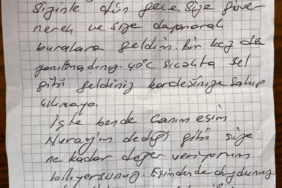 Sizinle dün gece. Size güve
nerek ve size dayanarak
buralara geldim. Bir kez de
yanılmadınız. sıcakta sel
gibi geldiniz kardeşinize sahip
çıkmaya.
İşte bende canım eşim
Nuray'ım dediği gibi size
ne kadar değer veriyorum
biliyorsunuz. Eşinden de duydunuz